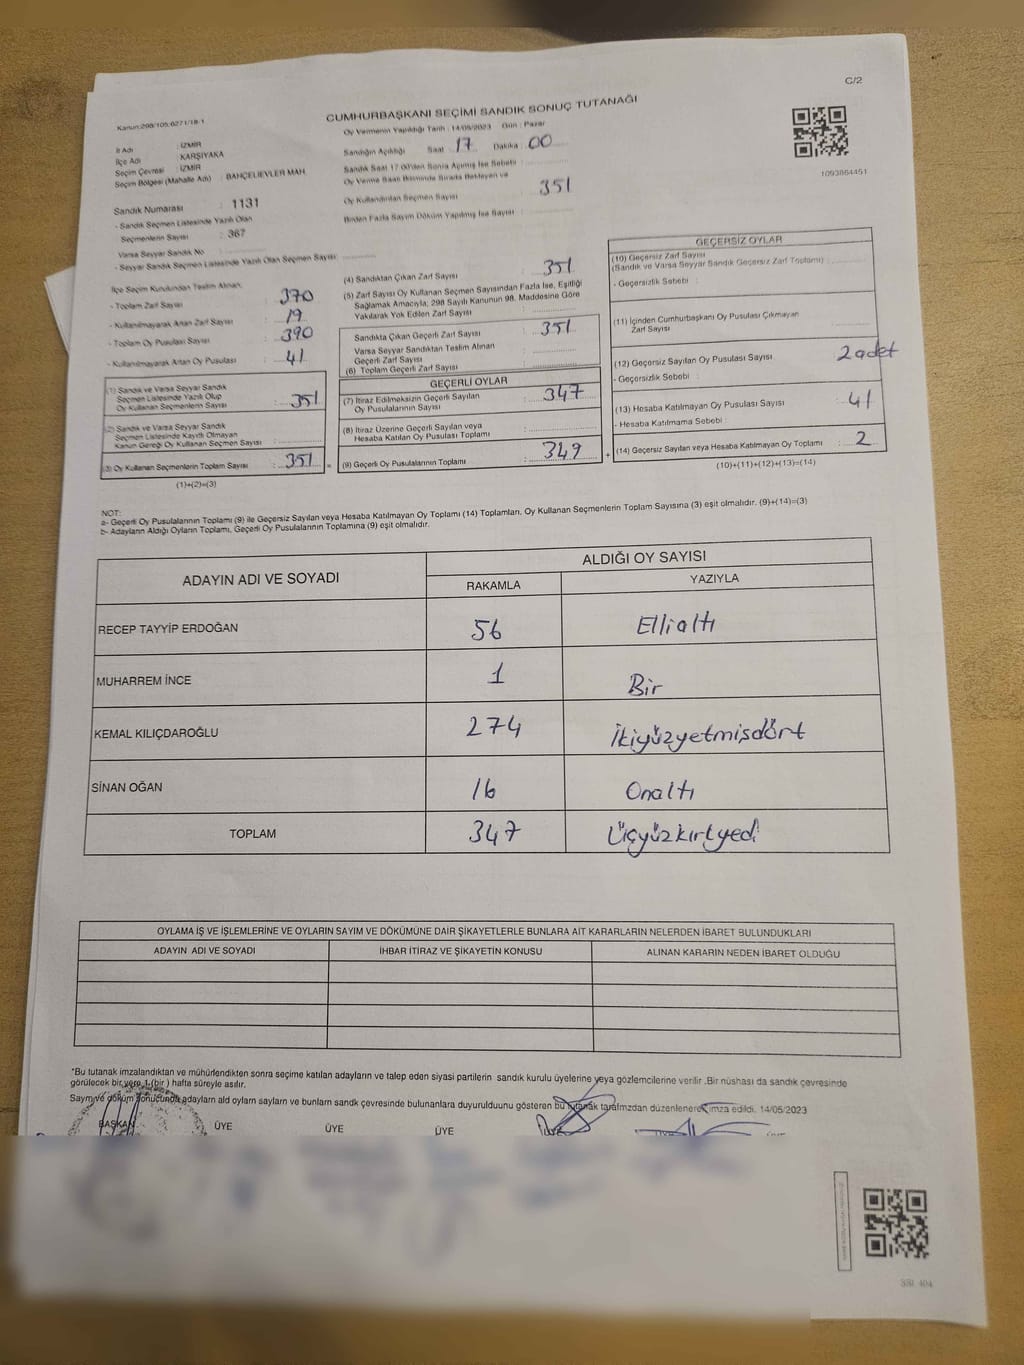 C/2
Kanun:298/105;6271/18-1
CUMHURBAŞKANI SEÇİMİ SANDIK SONUÇ TUTANAĞI
Oy Vermenin Yapıldığı Tarih : 14/05/2023 Gün : Pazar
1093864451
İl Adı : İZMİR
İlçe Adı : KARŞIYAKA
Seçim Çevresi : İZMİR
Seçim Bölgesi (Mahalle Adı) : BAHÇELİEVLER MAH.
Sandık Numarası : 1131
- Sandık Seçmen Listesinde Yazılı Olan
Seçmenlerin Sayısı : 367
Varsa Seyyar Sandık No :
- Seyyar Sandık Seçmen Listesinde Yazılı Olan Seçmen Sayısı:
Sandığın Açıldığı Saat : 17 Dakika : 00
Sandık Saat 17.00'den Sonra Açılmış İse Sebebi :
Oy Verme Saati Bitiminde Sırada Bekleyen ve
Oy Kullandırılan Seçmen Sayısı : 351
Birden Fazla Sayım Döküm Yapılmış İse Sayısı :
İlçe Seçim Kurulundan Teslim Alınan:
- Toplam Zarf Sayısı : 370
- Kullanılmayarak Artan Zarf Sayısı : 19
- Toplam Oy Pusulası Sayısı : 390
- Kullanılmayarak Artan Oy Pusulası : 41
(1) Sandık ve Varsa Seyyar Sandık
Seçmen Listesinde Yazılı Olup
Oy Kullanan Seçmenlerin Sayısı : 351
(2) Sandık ve Varsa Seyyar Sandık
Seçmen Listesinde Kayıtlı Olmayan
Kanun Gereği Oy Kullanan Seçmen Sayısı :
(3) Oy Kullanan Seçmenlerin Toplam Sayısı : 351 =
(1)+(2)=(3)
(4) Sandıktan Çıkan Zarf Sayısı : 351
(5) Zarf Sayısı Oy Kullanan Seçmen Sayısından Fazla İse, Eşitliği
Sağlamak Amacıyla, 298 Sayılı Kanunun 98. Maddesine Göre
Yakılarak Yok Edilen Zarf Sayısı :
Sandıkta Çıkan Geçerli Zarf Sayısı : 351
Varsa Seyyar Sandıktan Teslim Alınan
Geçerli Zarf Sayısı :
(6) Toplam Geçerli Zarf Sayısı :
GEÇERLİ OYLAR
(7) İtiraz Edilmeksizin Geçerli Sayılan
Oy Pusulalarının Sayısı : 347
(8) İtiraz Üzerine Geçerli Sayılan veya
Hesaba Katılan Oy Pusulası Toplamı :
(9) Geçerli Oy Pusulalarının Toplamı : 349 +
GEÇERSİZ OYLAR
(10) Geçersiz Zarf Sayısı
(Sandık ve Varsa Seyyar Sandık Geçersiz Zarf Toplamı) :
- Geçersizlik Sebebi :
(11) İçinden Cumhurbaşkanı Oy Pusulası Çıkmayan
Zarf Sayısı :
(12) Geçersiz Sayılan Oy Pusulası Sayısı : 2 adet
- Geçersizlik Sebebi :
(13) Hesaba Katılmayan Oy Pusulası Sayısı : 41
- Hesaba Katılmama Sebebi :
(14) Geçersiz Sayılan veya Hesaba Katılmayan Oy Toplamı : 2
(10)+(11)+(12)+(13)=(14)
NOT:
a- Geçerli Oy Pusulalarının Toplamı (9) ile Geçersiz Sayılan veya Hesaba Katılmayan Oy Toplamı (14) Toplamları, Oy Kullanan Seçmenlerin Toplam Sayısına (3) eşit olmalıdır. (9)+(14)=(3)
b- Adayların Aldığı Oyların Toplamı, Geçerli Oy Pusulalarının Toplamına (9) eşit olmalıdır.
ADAYIN ADI VE SOYADI ALDIĞI OY SAYISI
RAKAMLA YAZIYLA
RECEP TAYYİP ERDOĞAN 56 Ellialtı
MUHARREM İNCE 1 Bir
KEMAL KILIÇDAROĞLU 274 İkiyüzyetmişdört
SİNAN OĞAN 16 Onaltı
TOPLAM 347 Üçyüzkırkyedi
OYLAMA İŞ VE İŞLEMLERİNE VE OYLARIN SAYIM VE DÖKÜMÜNE DAİR ŞİKAYETLERLE BUNLARA AİT KARARLARIN NELERDEN İBARET BULUNDUKLARI
ADAYIN ADI VE SOYADI İHBAR İTİRAZ VE ŞİKAYETİN KONUSU ALINAN KARARIN NEDEN İBARET OLDUĞU
*Bu tutanak imzalandıktan ve mühürlendikten sonra seçime katılan adayların ve talep eden siyasi partilerin sandık kurulu üyelerine veya gözlemcilerine verilir .Bir nüshası da sandık çevresinde
görülecek bir yere 1 (bir ) hafta süreyle asılır.
Sayım ve döküm sonucunda adayların ald oyların sayıları ve bunların sandk çevresinde bulunanlara duyurulduunu gösteren bu tutanak tarafmzdan düzenlenerek imza edildi. 14/05/2023
BAŞKAN ÜYE ÜYE ÜYE